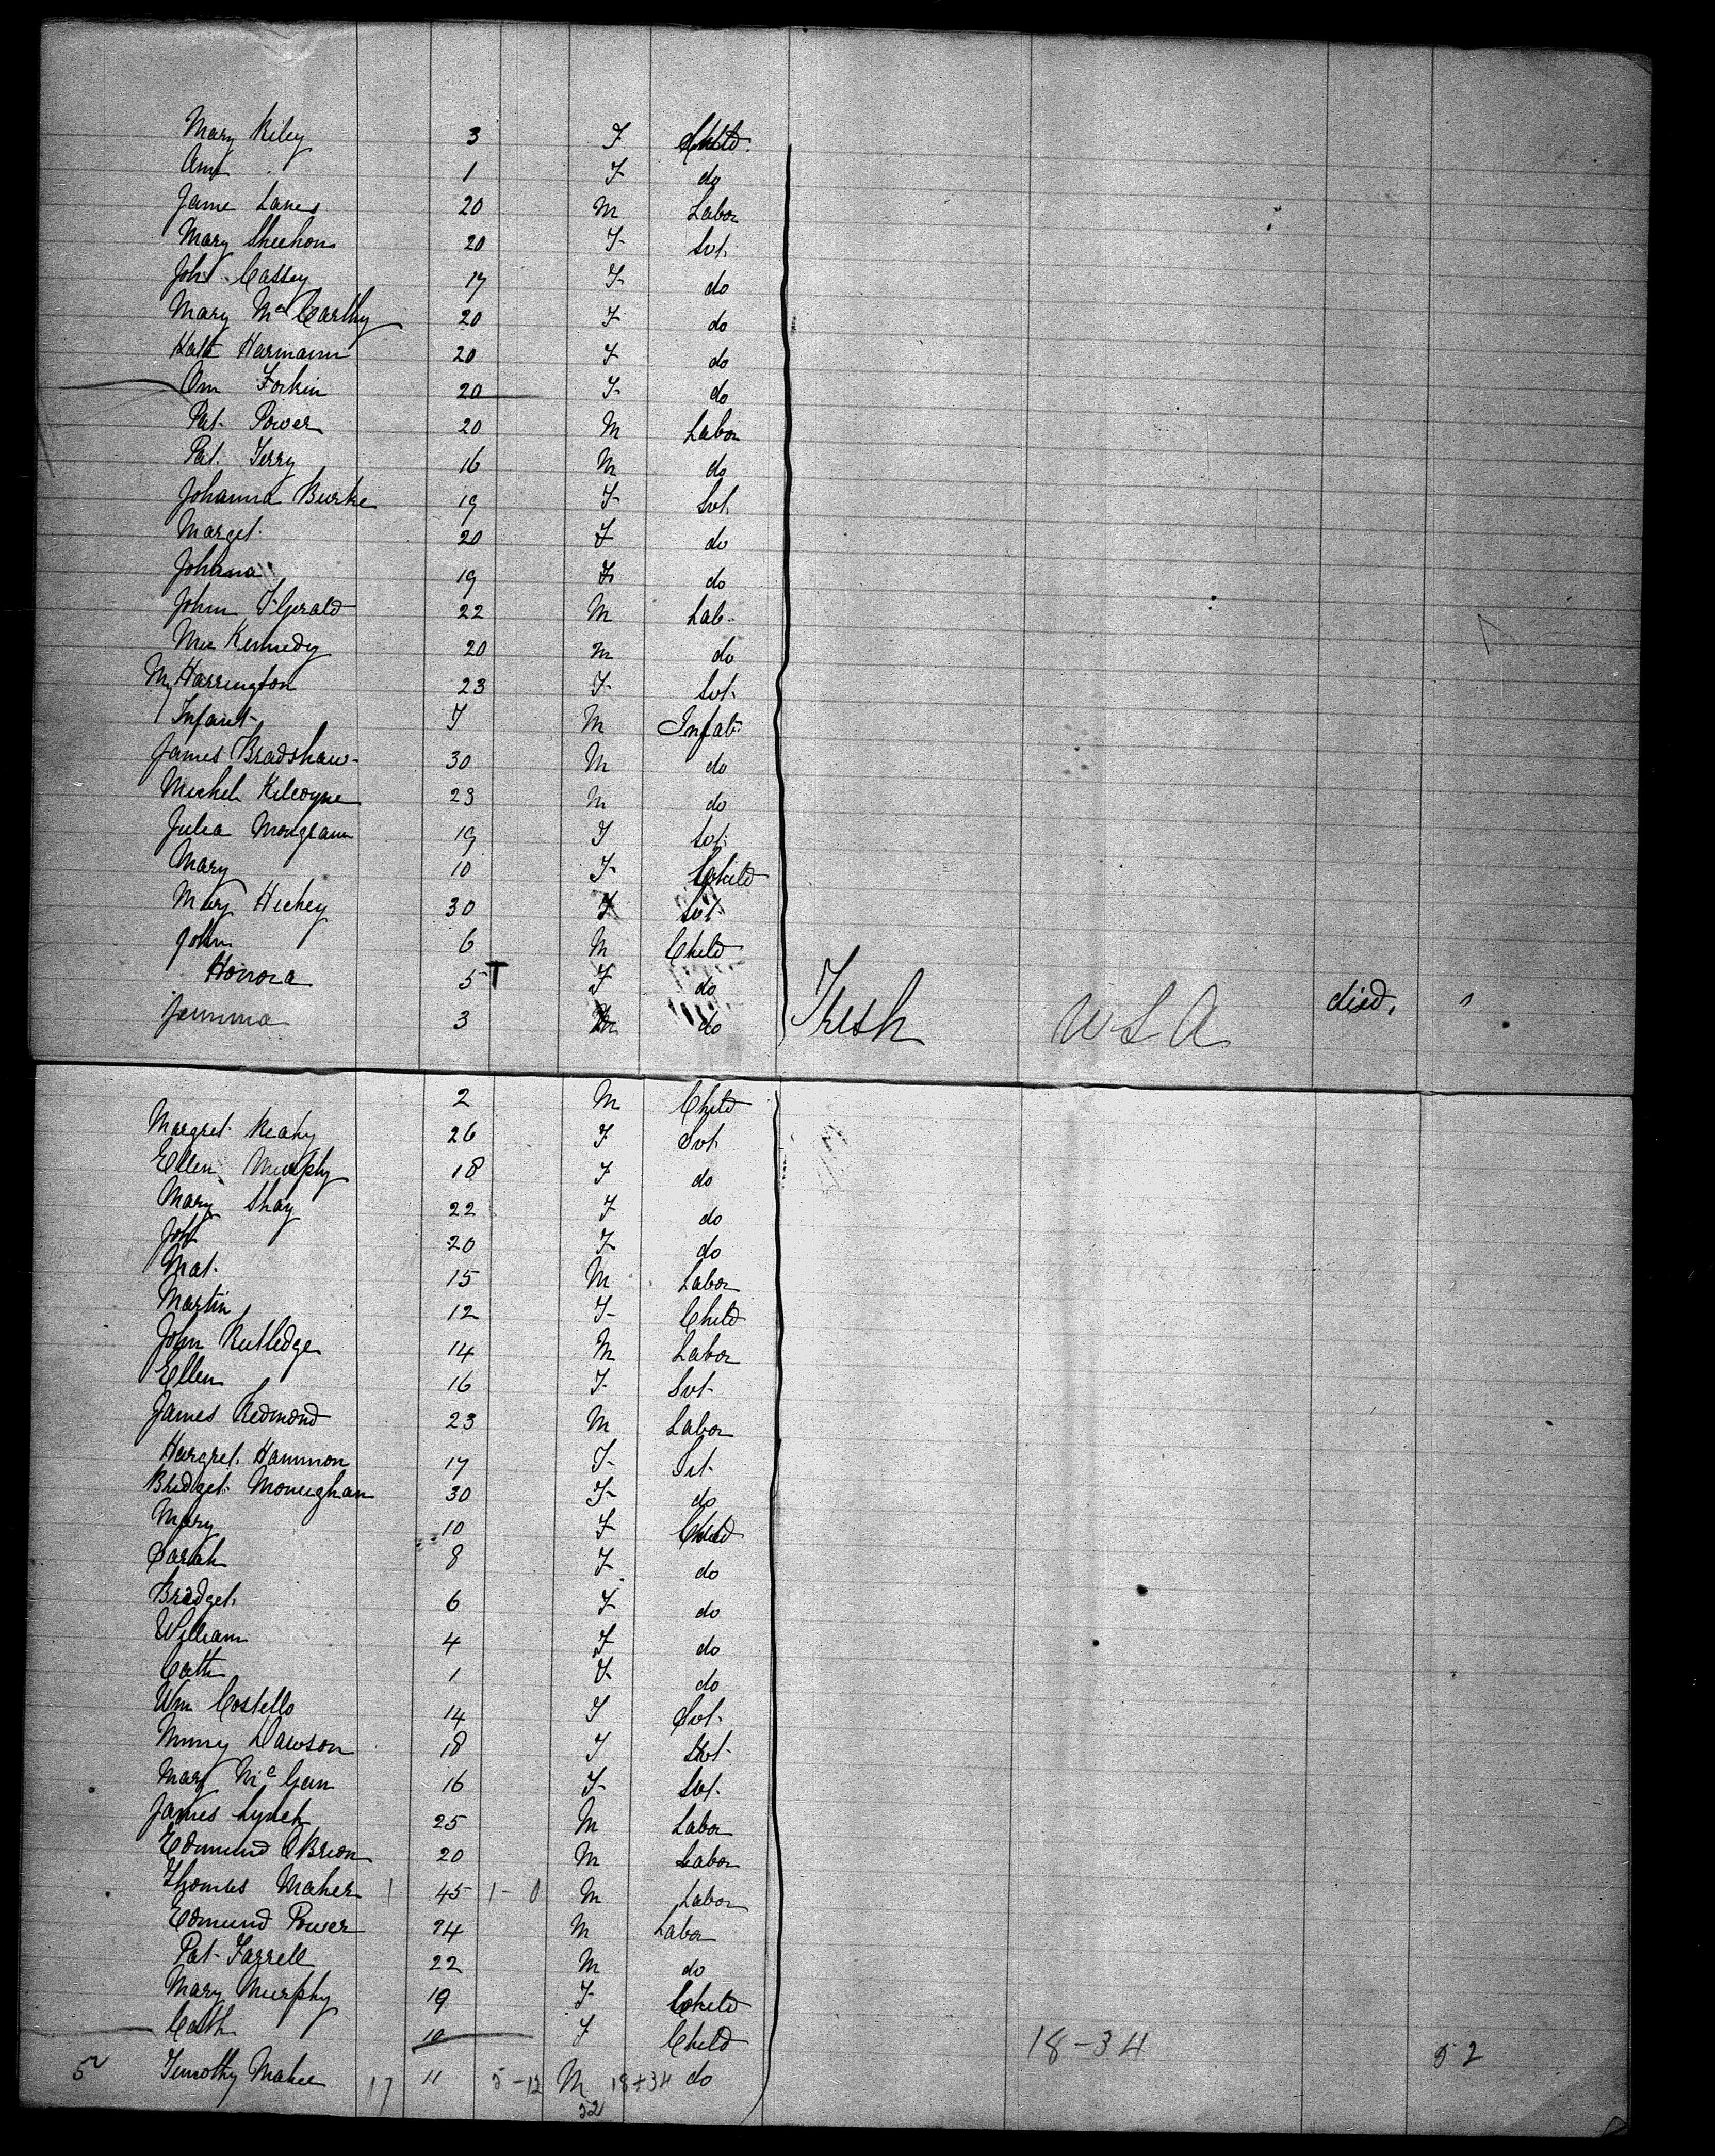 Mary Riley 3 F Child.
Ann 1 F do
Jame Lanes 20 M Labor
Mary Sheehon 20 F Svt.
Joh Cassey 19 F do
Mary McCarthy 20 F do
Kate Harmann 20 F do
Ann Forkin 20 F do
Pat. Power 20 M Labor
Pat. Terry 16 M do
Johanna Burke 19 F Svt.
Marget. 20 F do
Johana 19 F do
John FGerald 22 M Lab.
Kennedy 20 M do
My Harrington 23 F Svt.
Infant F M Infat.
James Bradshaw 30 M do
Michel Kilcoyne 23 M do
Julia 19 F Svt.
Mary 10 F Child
Mary Hickey 30 F Svt.
John 6 M Child
Honora 5 T F do died, 1
Jemima 3 M do Irish USA
2 M Child
Margret 26 F Svt
Ellen Murphy 18 F do
Mary Shay 22 F do
Joh 20 F do
Mat. 15 M Labor
Martin 12 F Child
John Rutledge 14 M Labor
Ellen 16 F Svt.
James Redmond 23 M Labor
Hargret. Hammon 17 F Svt.
Bridget. Moneighan 30 F do
Mary 10 F Child
Sarah 8 F do
Bridget. 6 F do
William 4 F do
Cath 1 F do
Wm Costello 14 F Svt.
Dawson 18 F Svt.
Mary 16 F Svt.
James Lynch 25 M Labor
Edmund OBrion 20 M Labor
Thomas Maher 1 45 1-0 M Labor
Edmund Power 24 M Labor
Pat. Farrell 22 M do
Mary Murphy 19 F Child
Cath 10 F Child 18-34 52
5 Timothy Maher 17 11 5-12 M 18+34 do
52